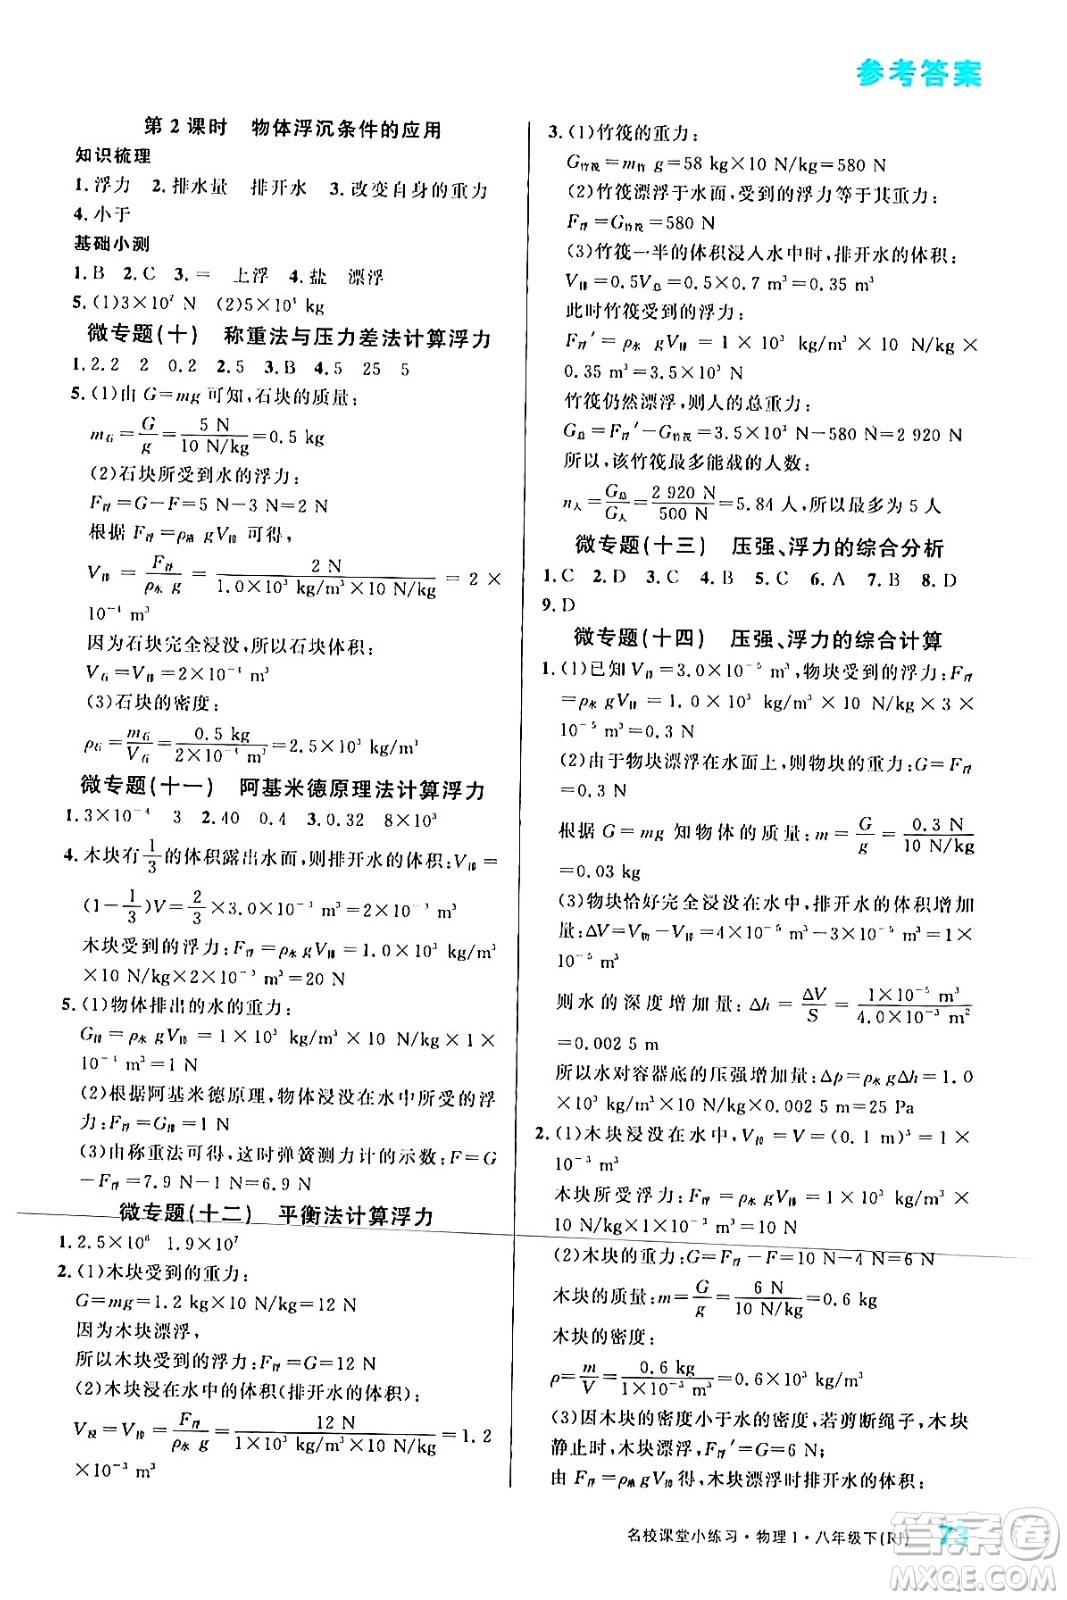 参考答案
第2课时　物体浮沉条件的应用
知识梳理
1.浮力　2.排水量　排开水　3.改变自身的重力
4.小于
基础小测
1.B　2.C　3.=　上浮　4.盐　漂浮
5.(1)3×10⁷ N　(2)5×10⁴ kg
微专题(十)　称重法与压力差法计算浮力
1.2.2　2　0.2　2.5　3.B　4.5　25　5
5.(1)由 G=mg 可知,石块的质量:
m石=G/g=5 N/10 N/kg=0.5 kg
(2)石块所受到水的浮力:
F浮=G-F=5 N-3 N=2 N
根据 F浮=ρ液 gV排 可得,
V排=F浮/ρ水 g=2 N/1.0×10³ kg/m³×10 N/kg=2×
10⁻⁴ m³
因为石块完全浸没,所以石块体积:
V石=V排=2×10⁻⁴ m³
(3)石块的密度:
ρ石=m石/V石=0.5 kg/2×10⁻⁴ m³=2.5×10³ kg/m³
微专题(十一)　阿基米德原理法计算浮力
1.3×10⁻⁴　3　2.40　0.4　3.0.32　8×10³
4.木块有1/3的体积露出水面,则排开水的体积:V排=
(1-1/3)V=2/3×3.0×10⁻³ m³=2×10⁻³ m³
木块受到的浮力:F浮=ρ水 gV排=1.0×10³ kg/m³
×10 N/kg×2×10⁻³ m³=20 N
5.(1)物体排出的水的重力:
G排=ρ水 gV排=1×10³ kg/m³×10 N/kg×1×
10⁻⁴ m³=1 N
(2)根据阿基米德原理,物体在水中所受的浮
力:F浮=G排=1 N
(3)由称重法可得,这时弹簧测力计的示数:F=G
-F浮=7.9 N-1 N=6.9 N
微专题(十二)　平衡法计算浮力
1.2.5×10⁸　1.9×10⁷
2.(1)木块受到的重力:
G=mg=1.2 kg×10 N/kg=12 N
因为木块漂浮,
所以木块受到的浮力:F浮=G=12 N
(2)木块浸在水中的体积(排开水的体积):
V浸=V排=F浮/ρ水 g=12 N/1×10³ kg/m³×10 N/kg=1.2
×10⁻³ m³
3.(1)竹筏的重力:
G竹筏=m竹 g=58 kg×10 N/kg=580 N
(2)竹筏漂浮于水面,受到的浮力等于其重力:
F浮=G竹筏=580 N
(3)竹筏一半的体积浸入水中时,排开水的体积:
V排=0.5V总=0.5×0.7 m³=0.35 m³
此时竹筏受到的浮力:
F浮′=ρ水 gV排=1.0×10³ kg/m³×10 N/kg×
0.35 m³=3.5×10³ N
竹筏仍然漂浮,则人的总重力:
G总=F浮′-G竹筏=3.5×10³ N-580 N=2 920 N
所以,该竹筏最多能载的人数:
n人=G总/G人=2 920 N/500 N=5.84 人,所以最多为 5 人
微专题(十三)　压强、浮力的综合分析
1.C　2.D　3.D　4.B　5.C　6.A　7.B　8.D
9.D
微专题(十四)　压强、浮力的综合计算
1.(1)已知 V排=3.0×10⁻⁵ m³,物块受到的浮力:F浮
=ρ水 gV排=1.0×10³ kg/m³×10 N/kg×3×
10⁻⁵ m³=0.3 N
(2)由于物块漂浮在水面上,物块的重力:G=F浮
=0.3 N
根据 G=mg 知物体的质量:m=G/g=0.3 N/10 N/kg
=0.03 kg
(3)物块恰好完全浸没在水中,排开水的体积增加
量:ΔV=V物-V排=4×10⁻⁵ m³-3×10⁻⁵ m³=1×
10⁻⁵ m³
则水的深度增加量:Δh=ΔV/S=1×10⁻⁵ m³/4.0×10⁻³ m²
=0.002 5 m
所以水对容器底的压强增加量:Δp=ρ水 gΔh=1.0
×10³ kg/m³×10 N/kg×0.002 5 m=25 Pa
2.(1)木块浸没在水中,V排=V=(0.1 m)³=1×
10⁻³ m³
木块所受浮力:F浮=ρ水 gV排=1.0×10³ kg/m³×
10 N/kg×1×10⁻³ m³=10 N
(2)木块的重力:G=F浮-F=10 N-4 N=6 N
木块的质量:m=G/g=6 N/10 N/kg=0.6 kg
木块的密度:
ρ=m/V=0.6 kg/1×10⁻³ m³=0.6×10³ kg/m³
(3)因木块的密度小于水的密度,若剪断绳子,木块
静止时,木块漂浮,F浮′=G=6 N;
由 F浮=ρ液 gV排 得,木块漂浮时排开水的体积:
名校课堂小练习·物理1·八年级下(RJ)　73
答案圈
MXQE.COM